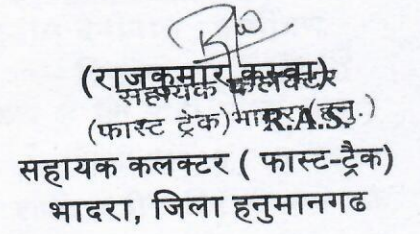 (राजकुमार कस्वा)
सहायक कलक्टर
(फास्ट ट्रेक) भादरा (हनु.)
R.A.S.
सहायक कलक्टर ( फास्ट-ट्रैक)
भादरा, जिला हनुमानगढ